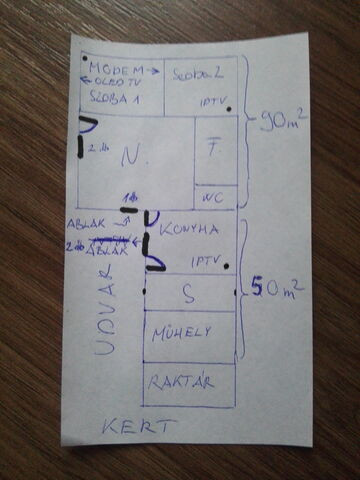 MODEM →
← OLED TV
SZOBA 1
Szoba 2
IPTV
90m²
2.db
N.
F.
WC
1db
ABLAK
2db ABLAK
KONYHA
IPTV
UDVAR
S
50m²
MŰHELY
RAKTÁR
KERT